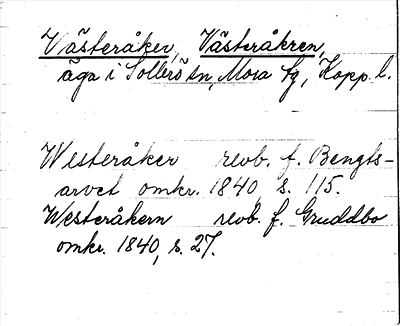 Västeråker, Västeråkren,
äga i Sollerö sn, Mora fg, Kopp. l.
Westeråker revb. f. Bengts-
arvet omkr. 1840, s. 115.
Westeråkern revb. f. Gruddbo
omkr. 1840, s. 27.